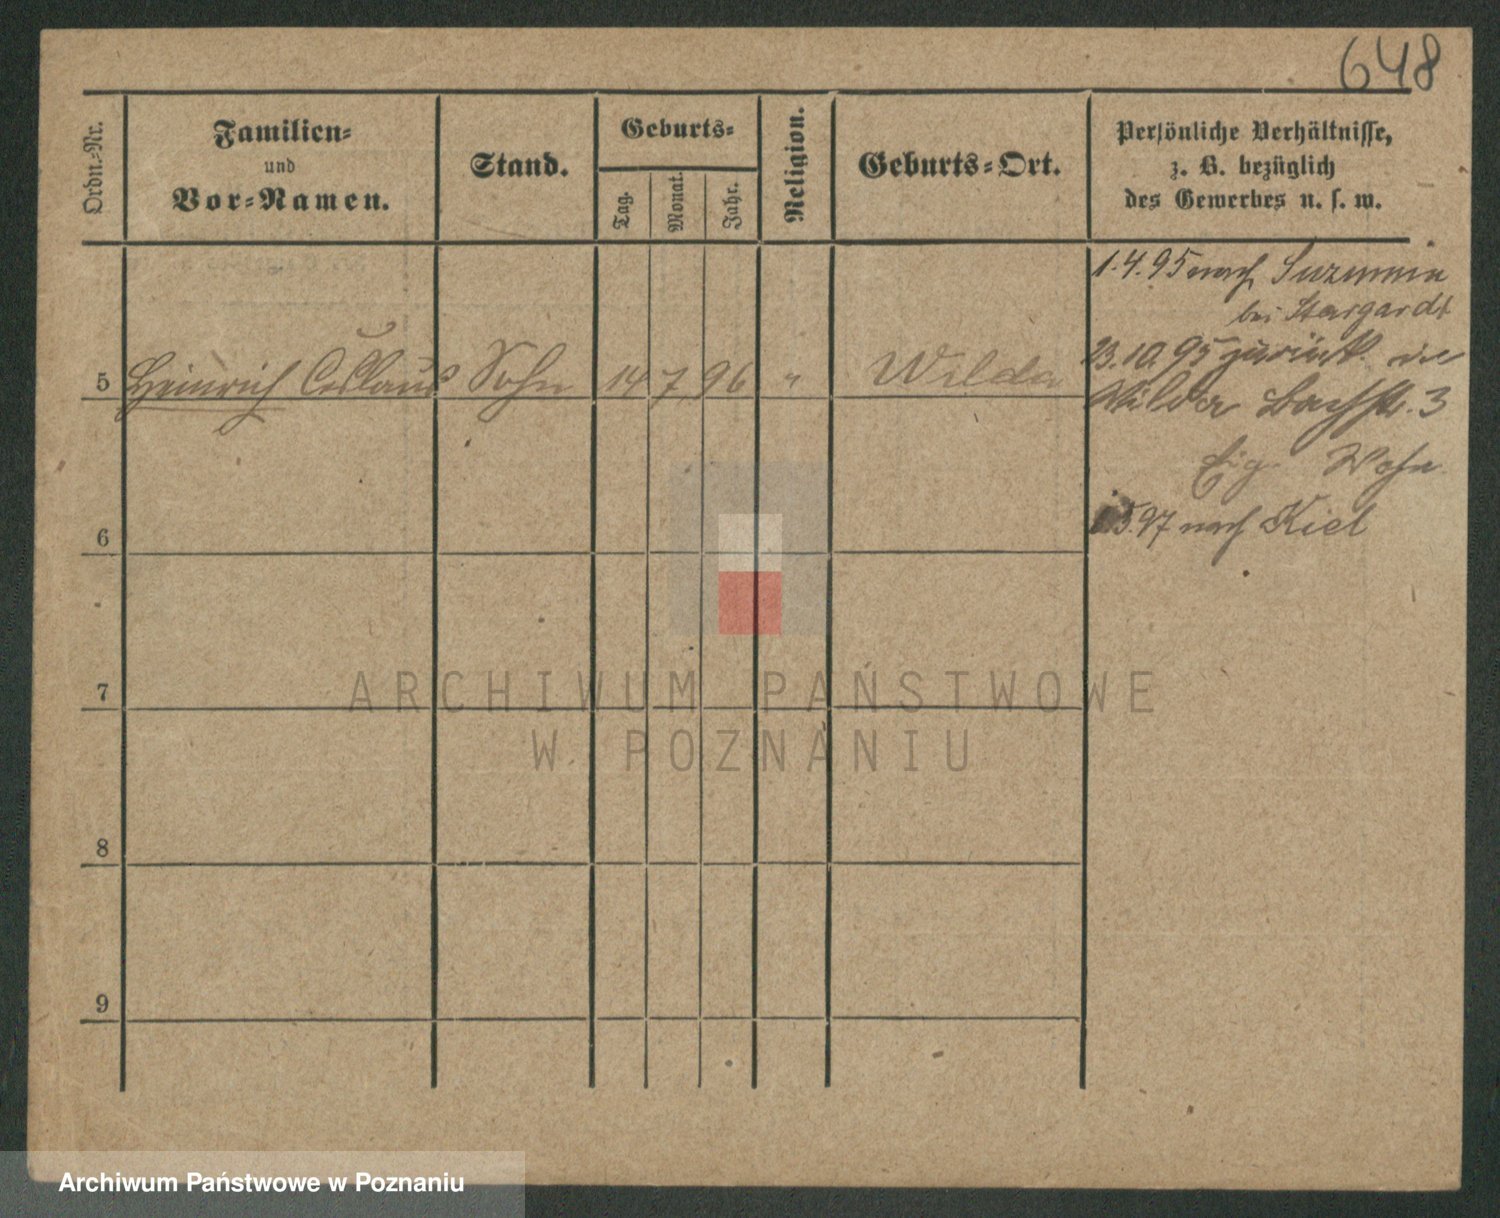 648
Ordn.-Nr.
Familien-
und
Vor-Namen.
Stand.
Geburts-
Tag.
Monat.
Jahr.
Religion.
Geburts-Ort.
Persönliche Verhältnisse,
z. B. bezüglich
des Gewerbes u. s. w.
1.4.95 nach
bei Stargardt
5 Heinrich Sohn 14 7, 96 " Wilda
23.10.95 zurück
Wilda Bachstr. 3
Eig. Wohn
5.97 nach Kiel
6
7
8
9
ARCHIWUM PAŃSTWOWE
W POZNANIU
Archiwum Państwowe w Poznaniu